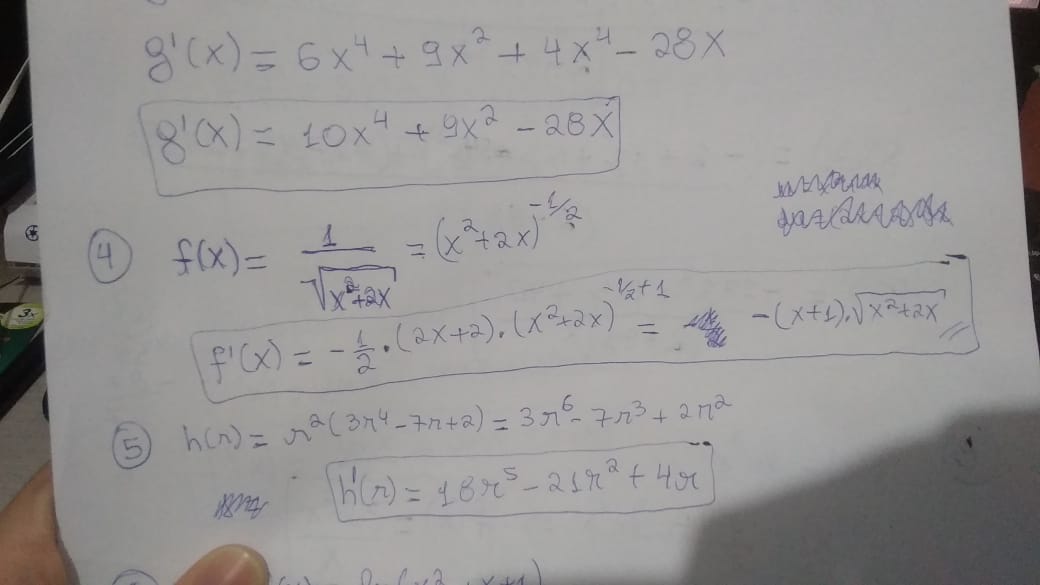 g'(x) = 6x⁴ + 9x² + 4x⁴ - 28x
g'(x) = 10x⁴ + 9x² - 28x
④ f(x) = 1/√(x²+2x) = (x²+2x)^(-1/2)
f'(x) = -1/2 · (2x+2) · (x²+2x)^(-1/2+1) = -(x+1) · √(x²+2x)
⑤ h(r) = r²(3r⁴-7r+2) = 3r⁶ - 7r³ + 2r²
h'(r) = 18r⁵ - 21r² + 4r